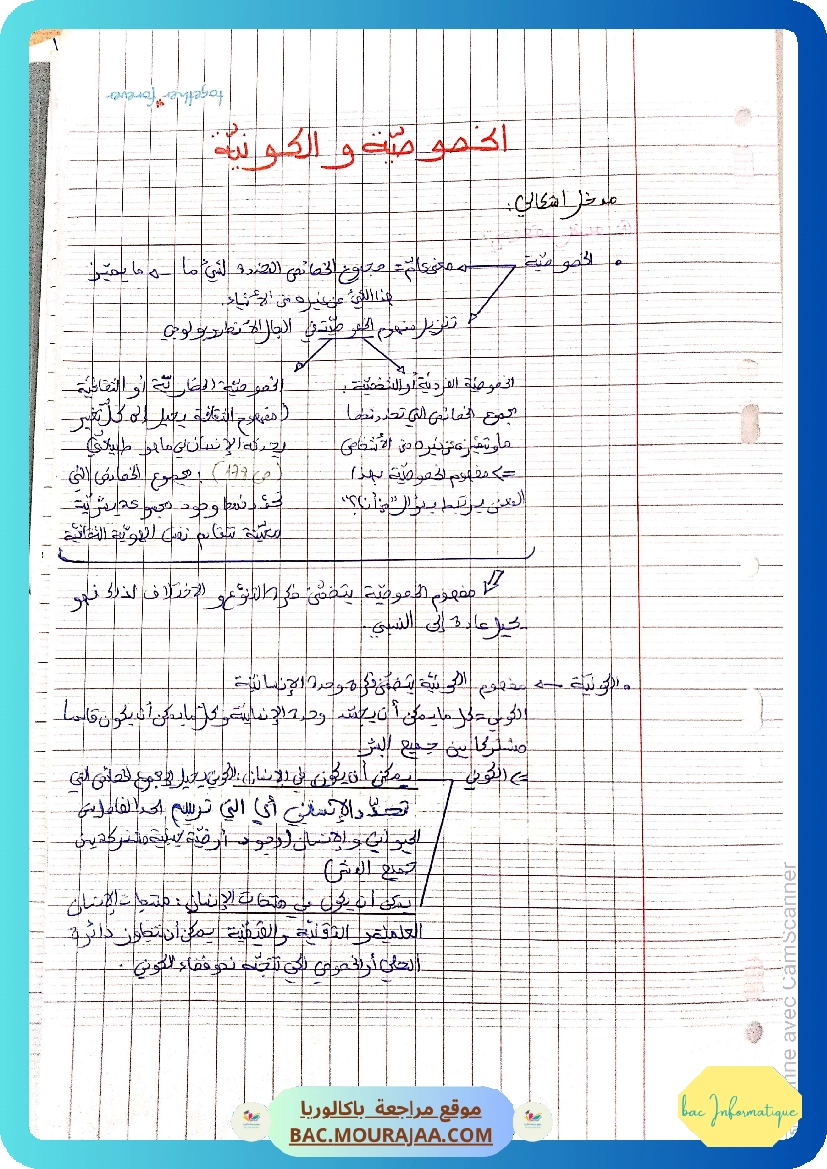 ١
together forever
الخصوصيّة و الكونيّة
مدخل إشكالي.
• الخصوصيّة
معنى عام = مجموع الخصائص المحددة لشيء ما → ما يميّز
هذا الشيء عن غيره من الأشياء.
تنزيل مفهوم الخصوصيّة في المجال الأنتروبولوجي
الخصوصيّة الفرديّة أو الشخصيّة:
مجموع الخصائص التي تحدد شخصا
ما و تميّزه عن غيره من الأشخاص
=> مفهوم الخصوصيّة بهذا
المعنى يرتبط بسؤال "من أنا؟"
الخصوصيّة الحضاريّة أو الثقافيّة
(مفهوم الثقافة يحيل إلى كل تغيير
يحدثه الإنسان في ما هو طبيعي
(ص 177): مجموع الخصائص التي
تحدّد نمط وجود مجموعة بشريّة
معيّنة تتقاسم نفس الهويّة الثقافيّة
مفهوم الخصوصيّة يتضمّن فكرة التنوّع و الاختلاف لذلك فهو
يحيل عادة إلى النسبي.
• الكونيّة → مفهوم الكونيّة يتضمّن فكرة وحدة الإنسانيّة
الكوني = كل ما يمكن أن يجسّد وحدة الإنسانيّة و كل ما يمكن أن يكون قاسما
مشتركا بين جميع البشر
=> الكوني
يمكن أن يكون في الإنسان: الكوني يحيل إلى مجموع الخصائص التي
تحدّد الإنسان أي التي ترسم الحد الفاصل بين
الحيوان و الإنسان (وجود أرضيّة مشتركة بين
جميع البشر)
يمكن أن يكون في منتجات الإنسان: منتجات الإنسان
العلميّة و التقنيّة و القيميّة يمكن أن تتجاوز دائرة
المحلي أو الخصوصي لكي تتّجه نحو فضاء الكوني.
nne avec CamScanner
موقع مراجعة باكالوريا
BAC.MOURAJAA.COM
bac Informatique